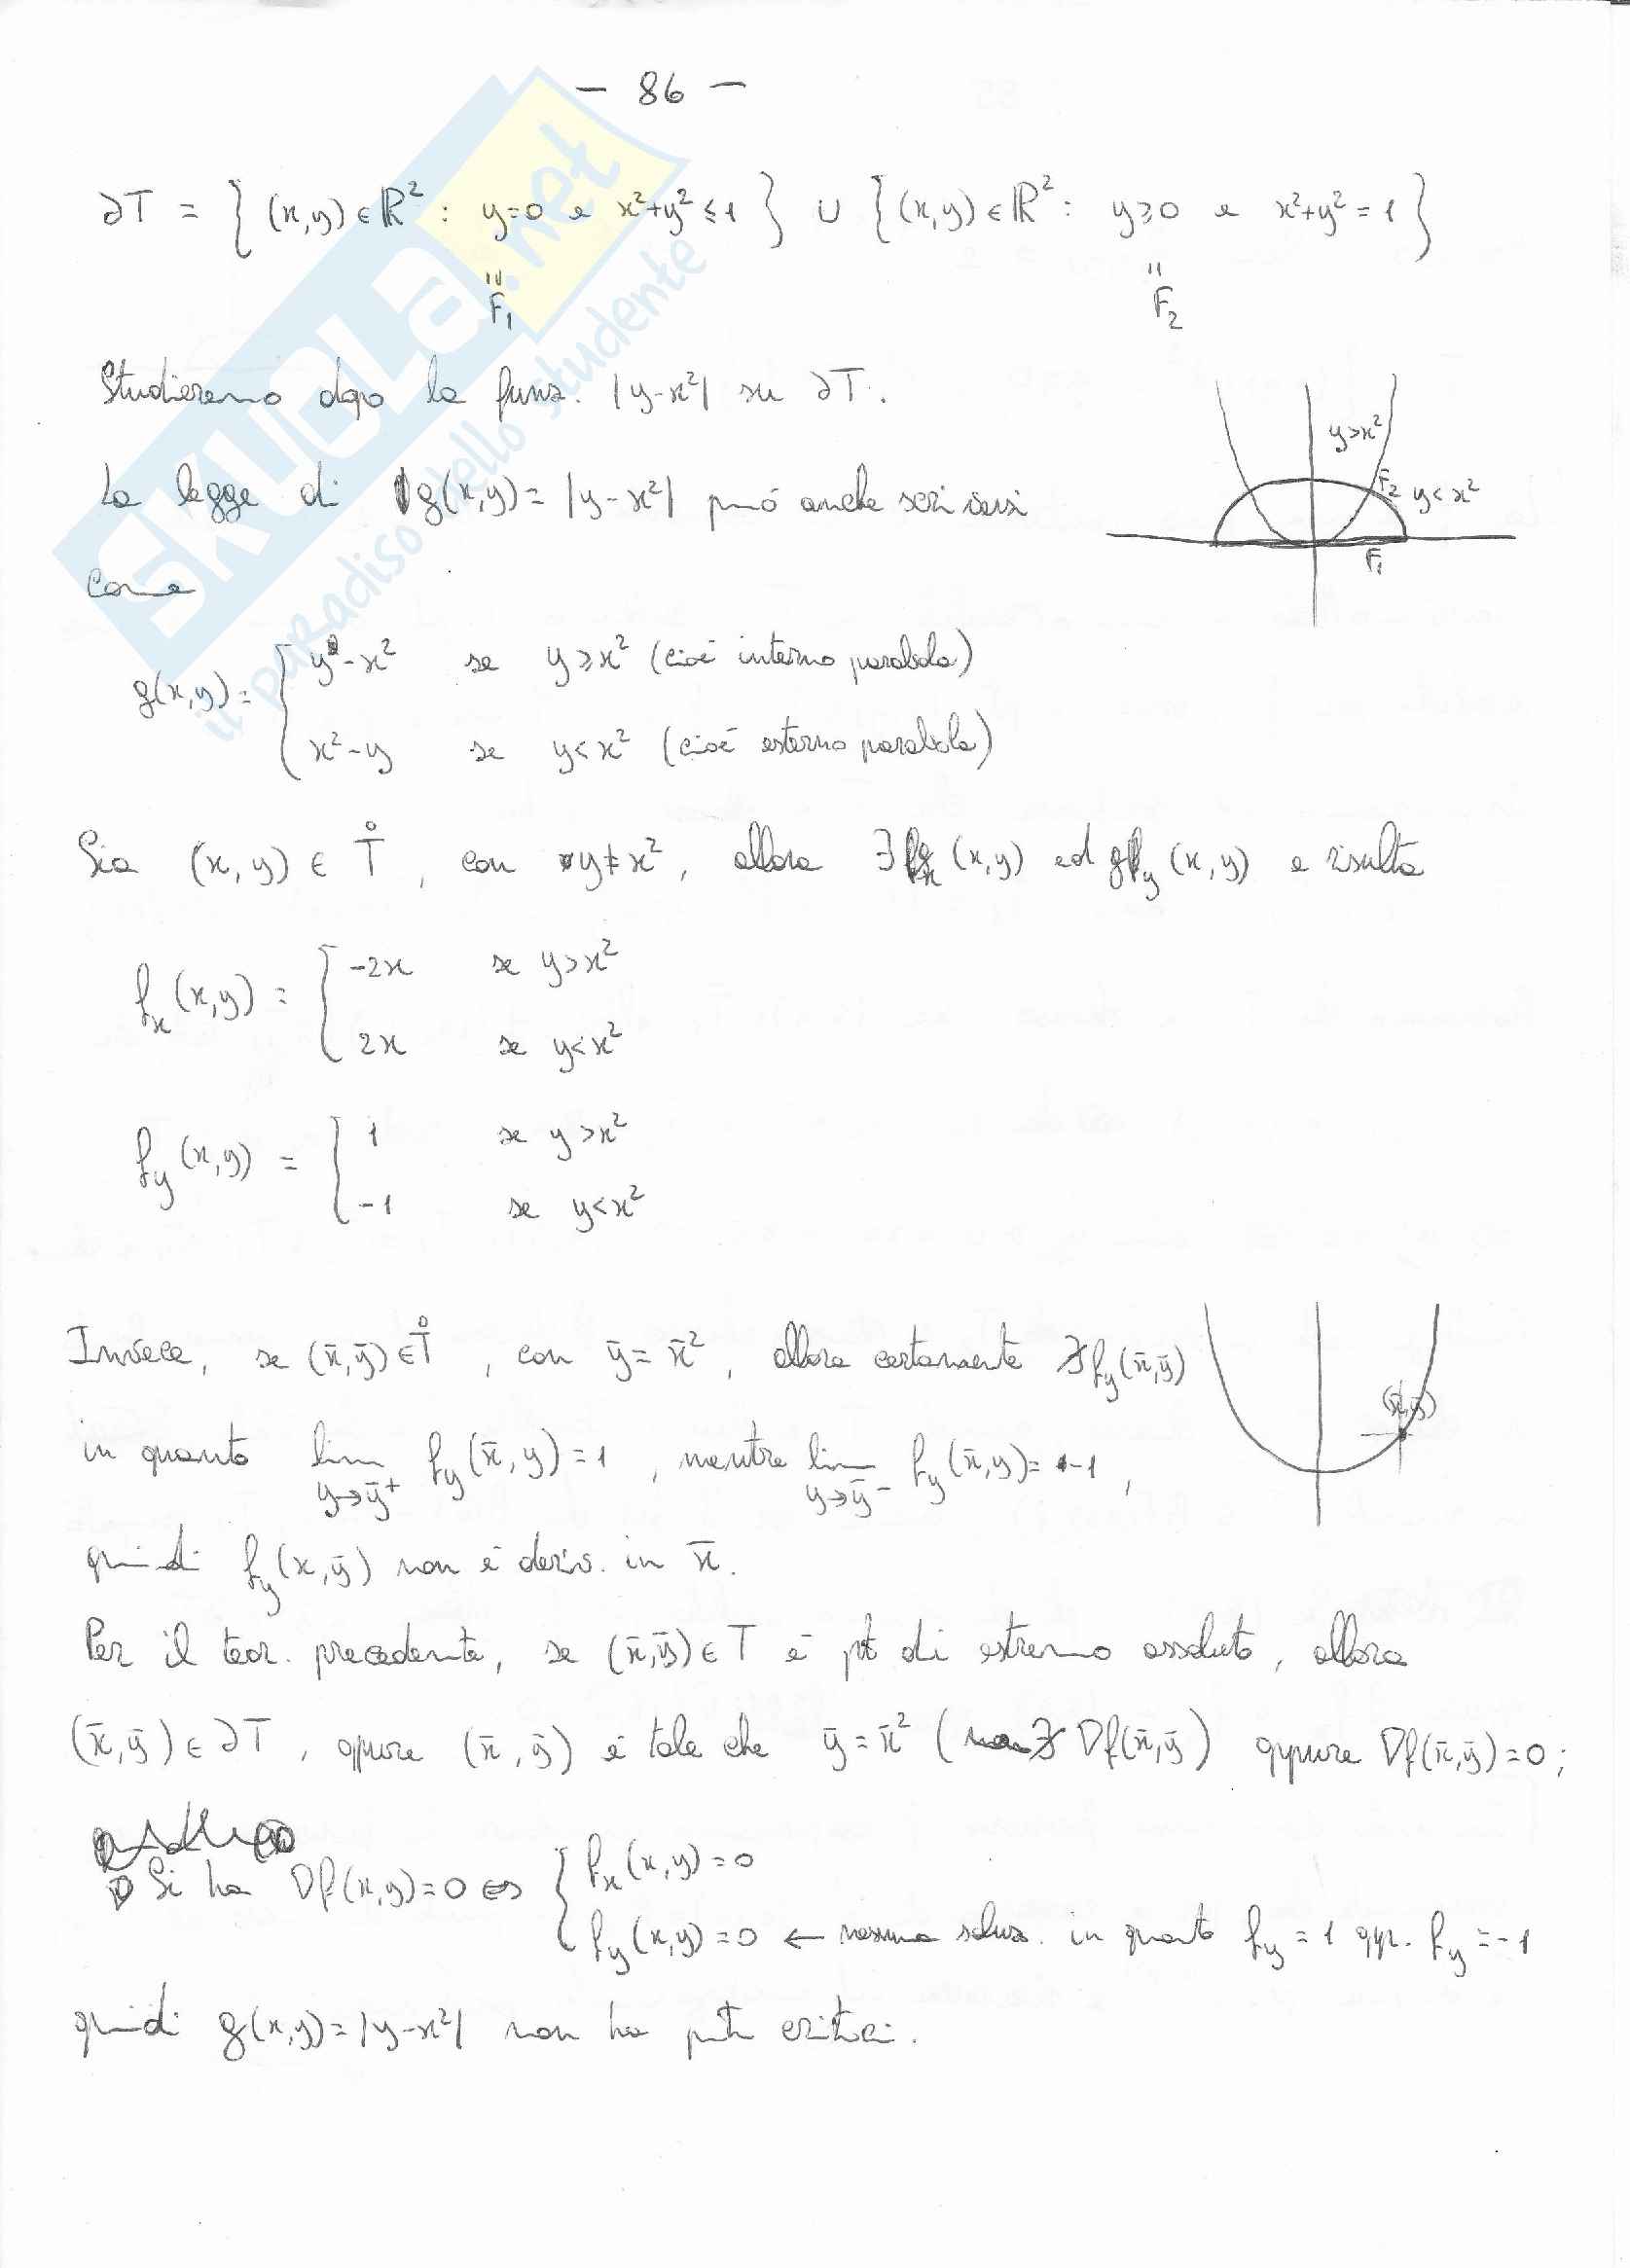 — 86 —
∂T = {(x,y) ∈ ℝ² : y=0 e x²+y² ≤ 1} ∪ {(x,y) ∈ ℝ² : y≥0 e x²+y² = 1}
= F₁ = F₂
Studieremo dopo la funz. |y-x²| su ∂T.
La legge di g(x,y) = |y-x²| può anche scriversi
come
y>x²
F₂ y<x²
F₁
g(x,y) = { y-x² se y≥x² (cioè interno parabola)
x²-y se y<x² (cioè esterno parabola)
Sia (x,y) ∈ T̊, con y≠x², allora ∃ gₓ(x,y) ed g_y(x,y) e risulta
fₓ(x,y) = { -2x se y>x²
2x se y<x²
f_y(x,y) = { 1 se y>x²
-1 se y<x²
Invece, se (x̄,ȳ) ∈ T̊, con ȳ = x̄², allora certamente ∄ f_y(x̄,ȳ)
(x̄,ȳ)
in quanto lim y→ȳ⁺ f_y(x̄,y) = 1, mentre lim y→ȳ⁻ f_y(x̄,y) = -1,
quindi f_y(x,ȳ) non è deriv. in x̄.
Per il teor. precedente, se (x̄,ȳ) ∈ T è pt di estremo assoluto, allora
(x̄,ȳ) ∈ ∂T, oppure (x̄,ȳ) è tale che ȳ = x̄² (∄ Df(x̄,ȳ)) oppure Df(x̄,ȳ) = 0;
Si ha Df(x,y) = 0 ⇔ { fₓ(x,y) = 0
f_y(x,y) = 0 ← nessuna soluz. in quanto f_y = 1 opp. f_y = -1
quindi g(x,y) = |y-x²| non ha punti critici.
SKUOLA.net
il paradiso dello studente